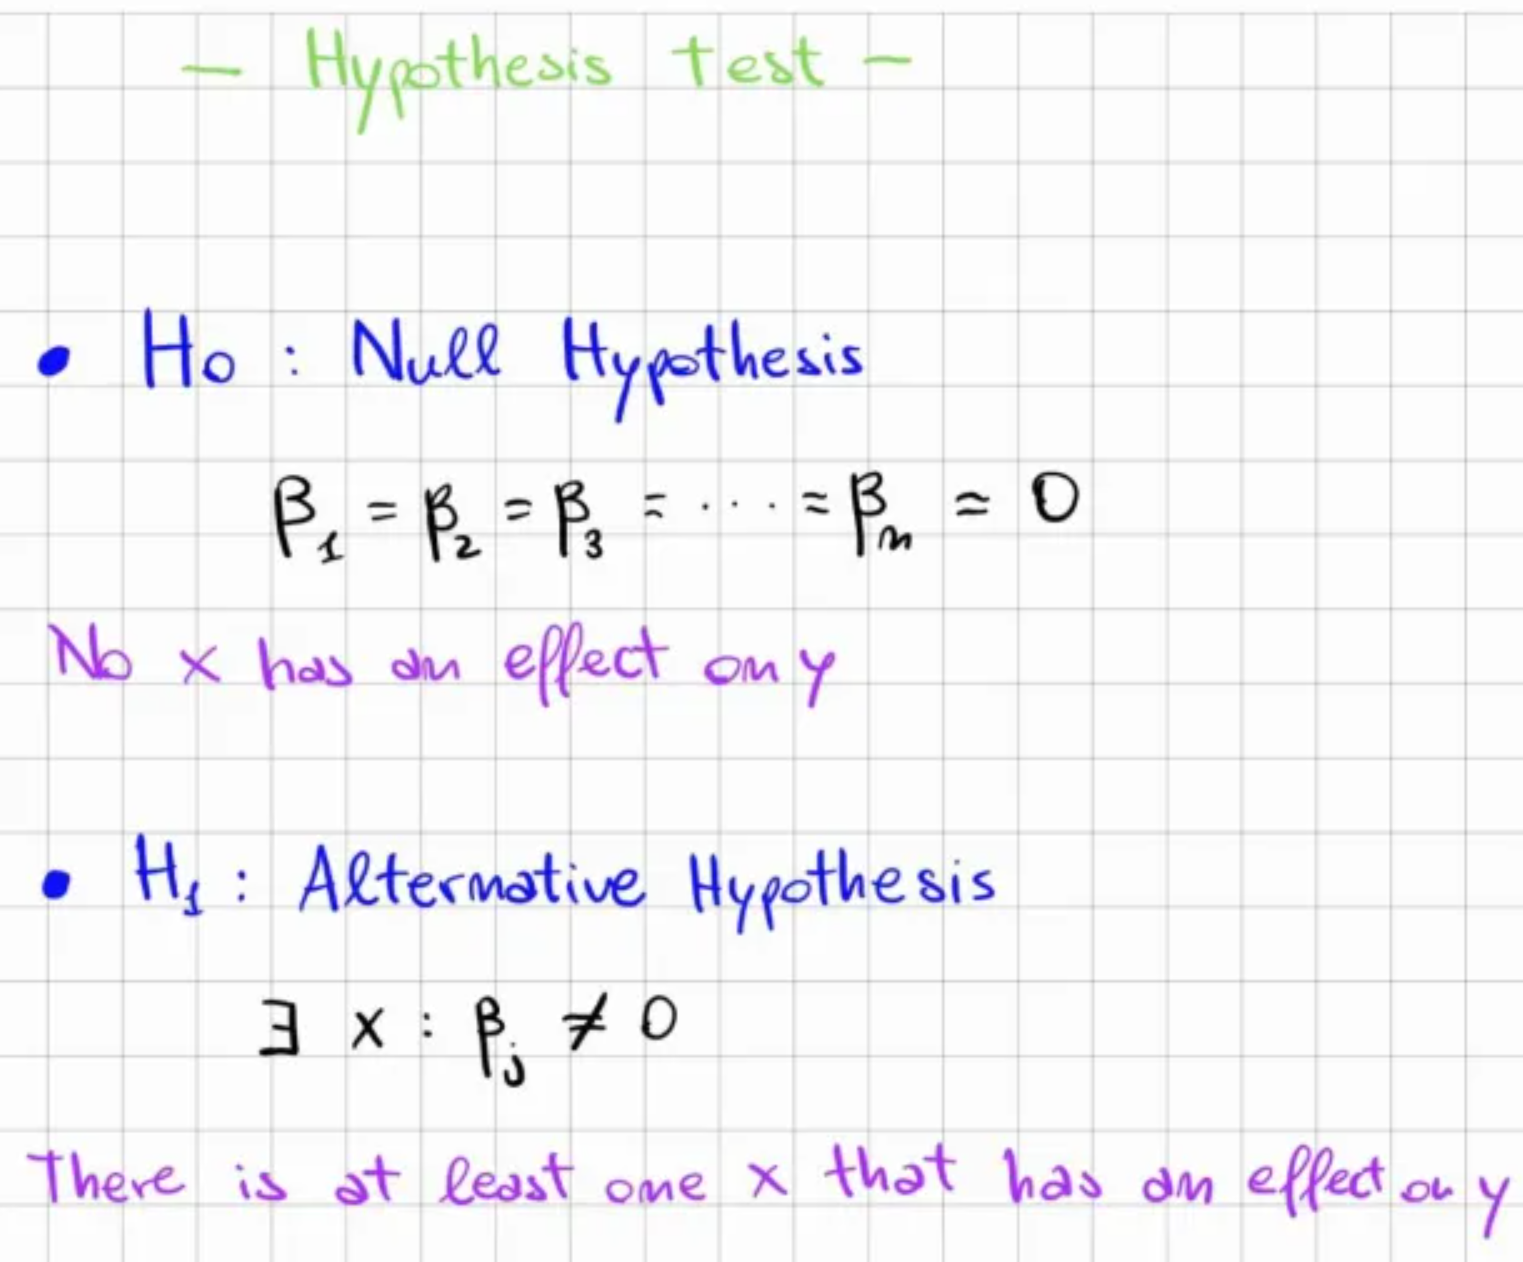 - Hypothesis Test -
• H₀ : Null Hypothesis
β₁ = β₂ = β₃ = ... = βₙ = 0
No x has an effect on y
• H₁ : Alternative Hypothesis
∃ x : βⱼ ≠ 0
There is at least one x that has an effect on y